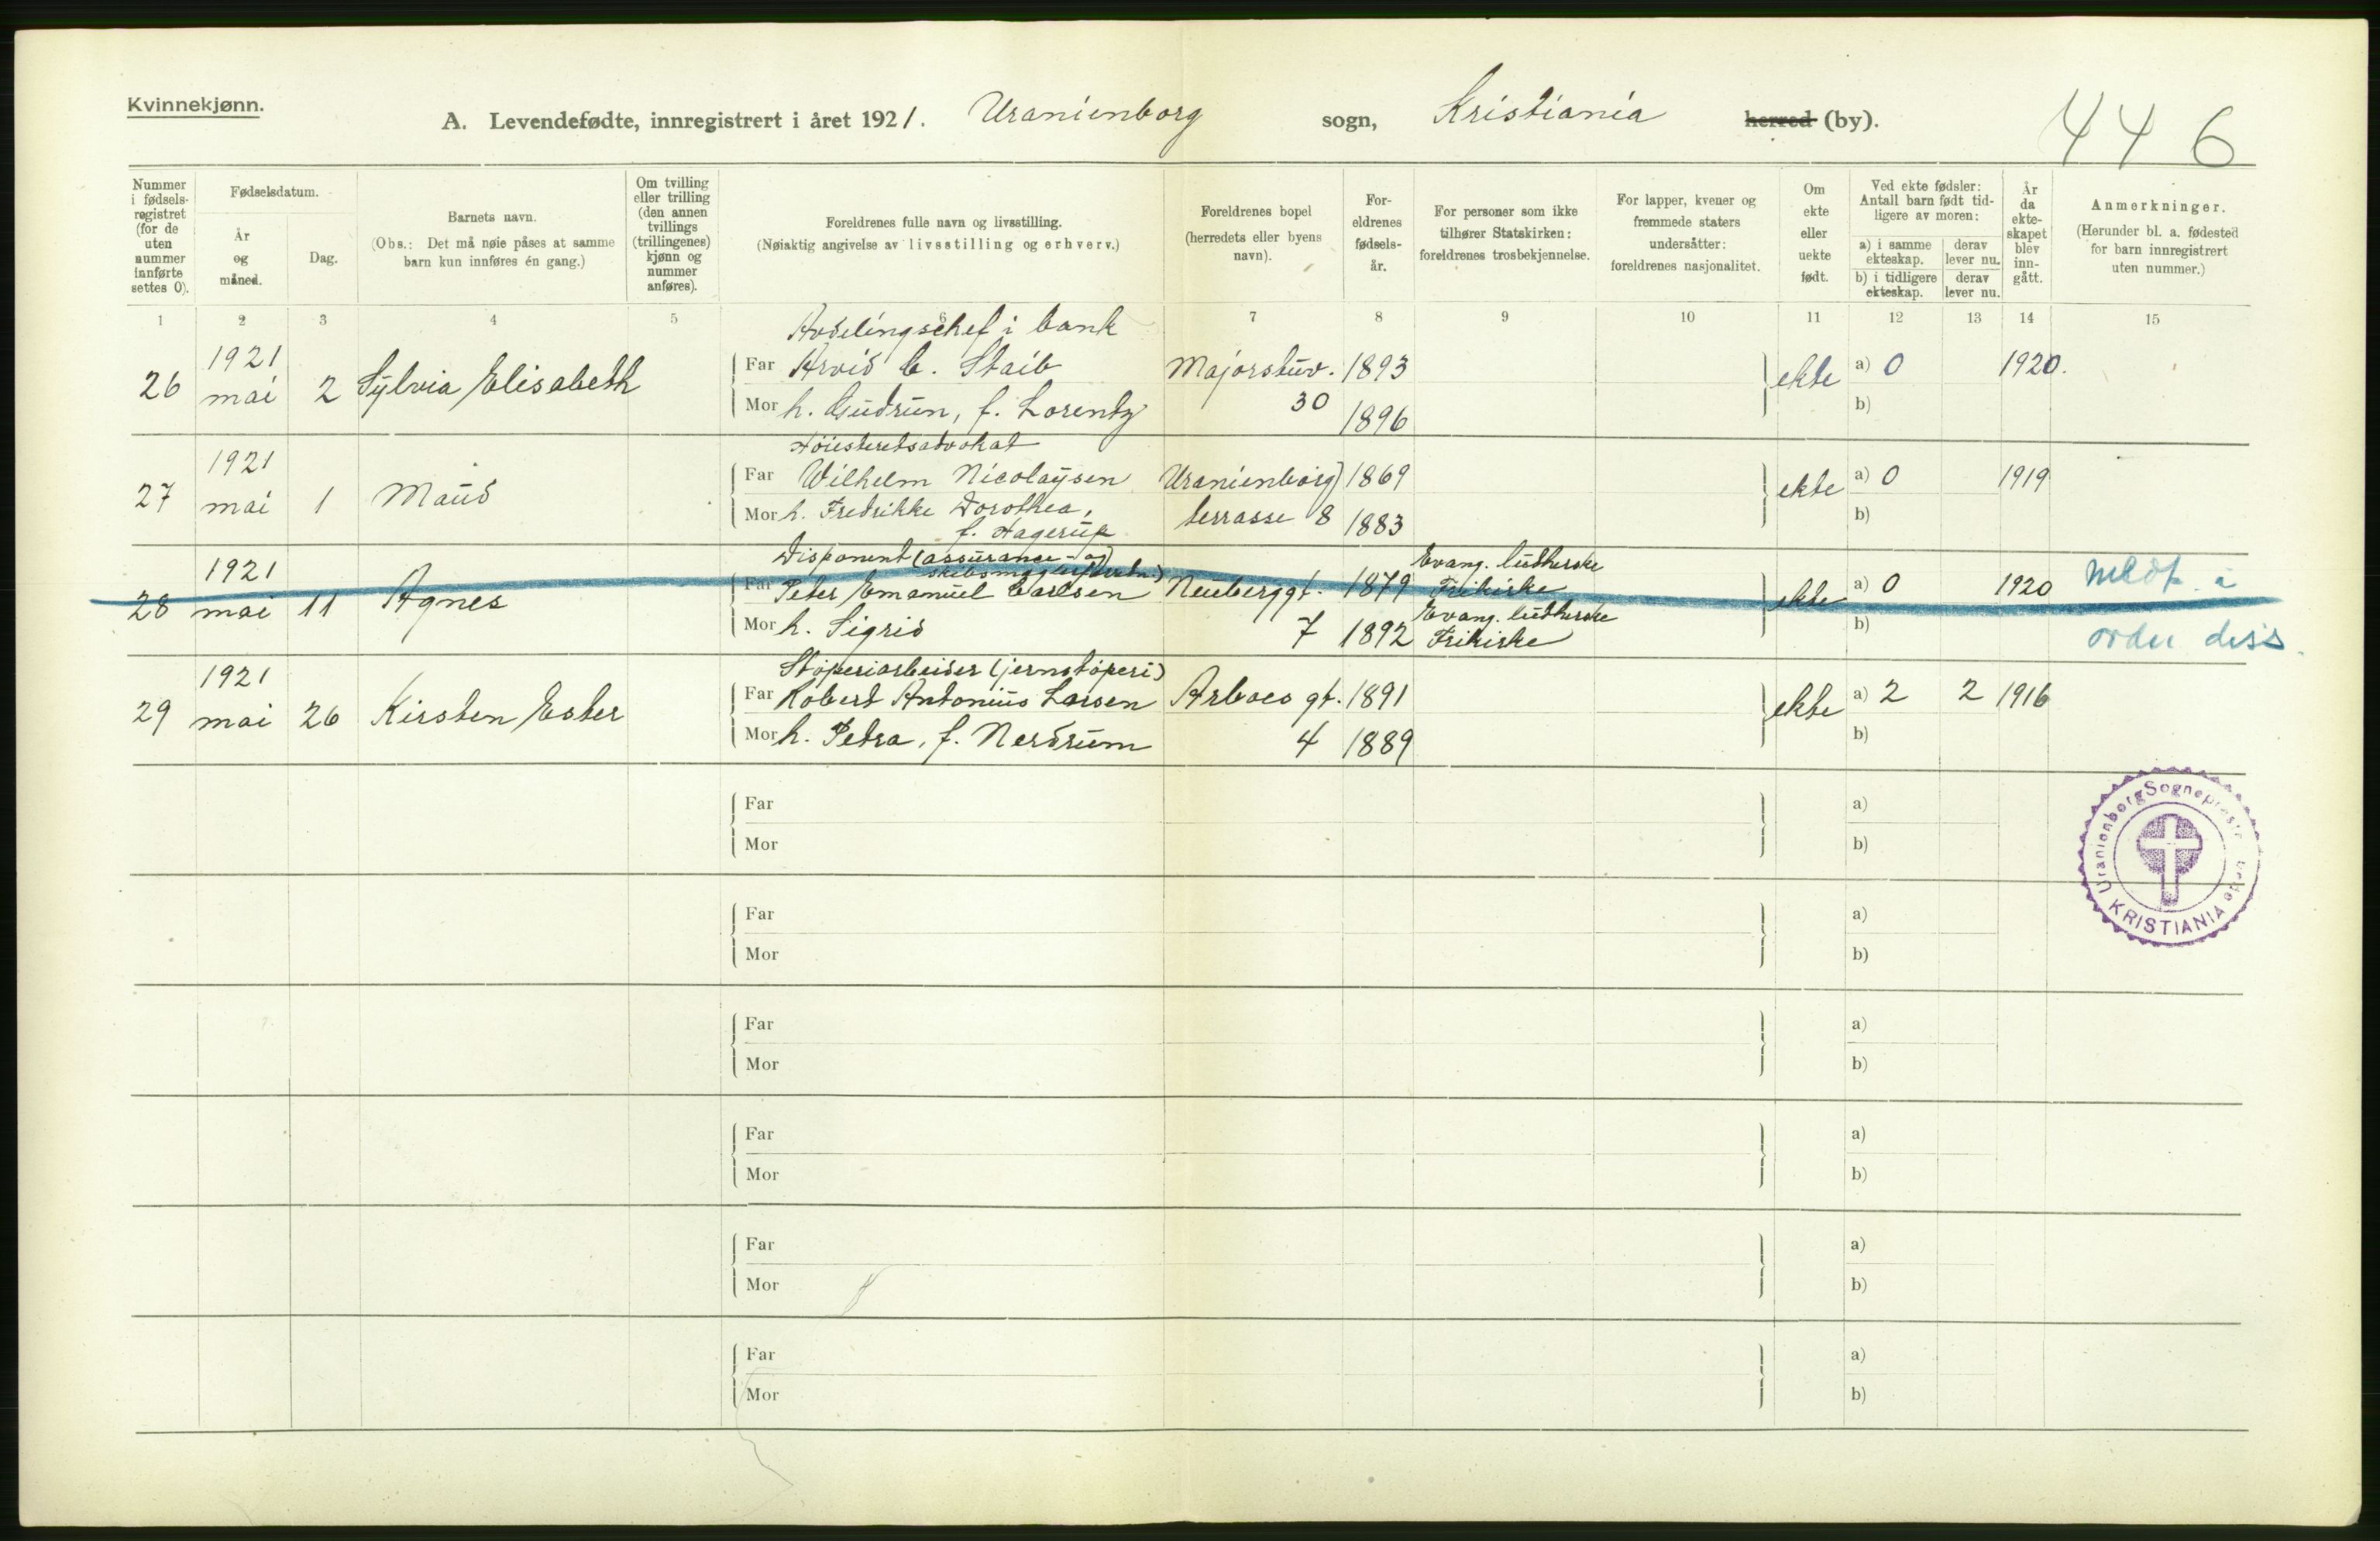 Kvinnekjønn.
A. Levendefødte, innregistrert i året 1921. Uranienborg sogn, Kristiania herred (by).
446
Nummer i fødsels-registret (for de uten nummer innførte settes 0).
Fødselsdatum.
År og måned.
Dag.
Barnets navn.
(Obs.: Det må nøie påses at samme barn kun innføres én gang.)
Om tvilling eller trilling (den annen tvillings (trillingenes) kjønn og nummer anføres).
Foreldrenes fulle navn og livsstilling.
(Nøiaktig angivelse av livsstilling og erhverv.)
Foreldrenes bopel (herredets eller byens navn).
For-eldrenes fødsels-år.
For personer som ikke tilhører Statskirken: foreldrenes trosbekjennelse.
For lapper, kvener og fremmede staters undersåtter: foreldrenes nasjonalitet.
Om ekte eller uekte født.
Ved ekte fødsler: Antall barn født tid-ligere av moren:
a) i samme ekteskap. derav lever nu.
b) i tidligere ekteskap. derav lever nu.
År da ekte-skapet blev inn-gått.
Anmerkninger.
(Herunder bl. a. fødested for barn innregistrert uten nummer.)
1 2 3 4 5 6 7 8 9 10 11 12 13 14 15
Avdelingschef i bank
26 1921 mai 2 Sylvia Elisabeth Far Arvid C. Staib Majorstuv. 1893 ekte a) 0 1920.
Mor h. Gudrun, f. Lorentz 30 1896 b)
Høiesteretsadvokat
27 1921 mai 1 Maud Far Wilhelm Nicolaysen Uranienborg 1869 ekte a) 0 1919
Mor h. Fredrikke Dorothea, f. Hagerup terrasse 8 1883 b)
Disponent (assurance- og
28 1921 mai 11 Agnes Far Peter Emanuel Carlsen Neuberggt. 1879 Evang. lutherske Frikirke ekte a) 0 1920
Mor h. Sigrid 7 1892 Evang. lutherske Frikirke b)
Støperiarbeider (jernstøperi)
29 1921 mai 26 Kirsten Ester Far Robert Antonius Larsen Arboes gt. 1891 ekte a) 2 2 1916
Mor h. Petra, f. Nerdrum 4 1889 b)
Far a)
Mor b)
Far a)
Mor b)
Far a)
Mor b)
Far a)
Mor b)
Far a)
Mor b)
Far a)
Mor b)
Uranienborg Sogneprest
KRISTIANIA